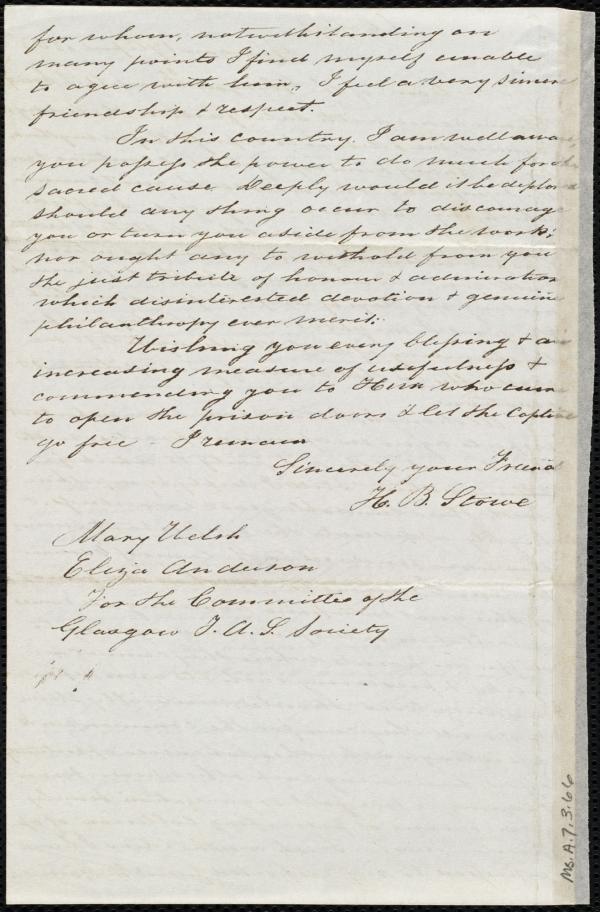 for whom, notwithstanding on
many points I find myself unable
to agree with him, I feel a very sincere
friendship & respect.
In this country, I am well aware,
you possess the power to do much for the
sacred cause. Deeply would it be deplored
should any thing occur to discourage
you or turn you aside from the work;
nor ought any to withold from you
the just tribute of honour & admiration
which disinterested devotion & genuine
philanthropy ever merit.
Wishing you every blessing & an
increasing measure of usefulness &
commending you to Him who came
to open the prison doors & let the Captive
go free I remain
Sincerely your Friend
H. B. Stowe
Mary Welsh
Eliza Anderson
For the Committee of the
Glasgow F. A. S. Society
Ms. A. 7. 3. 66